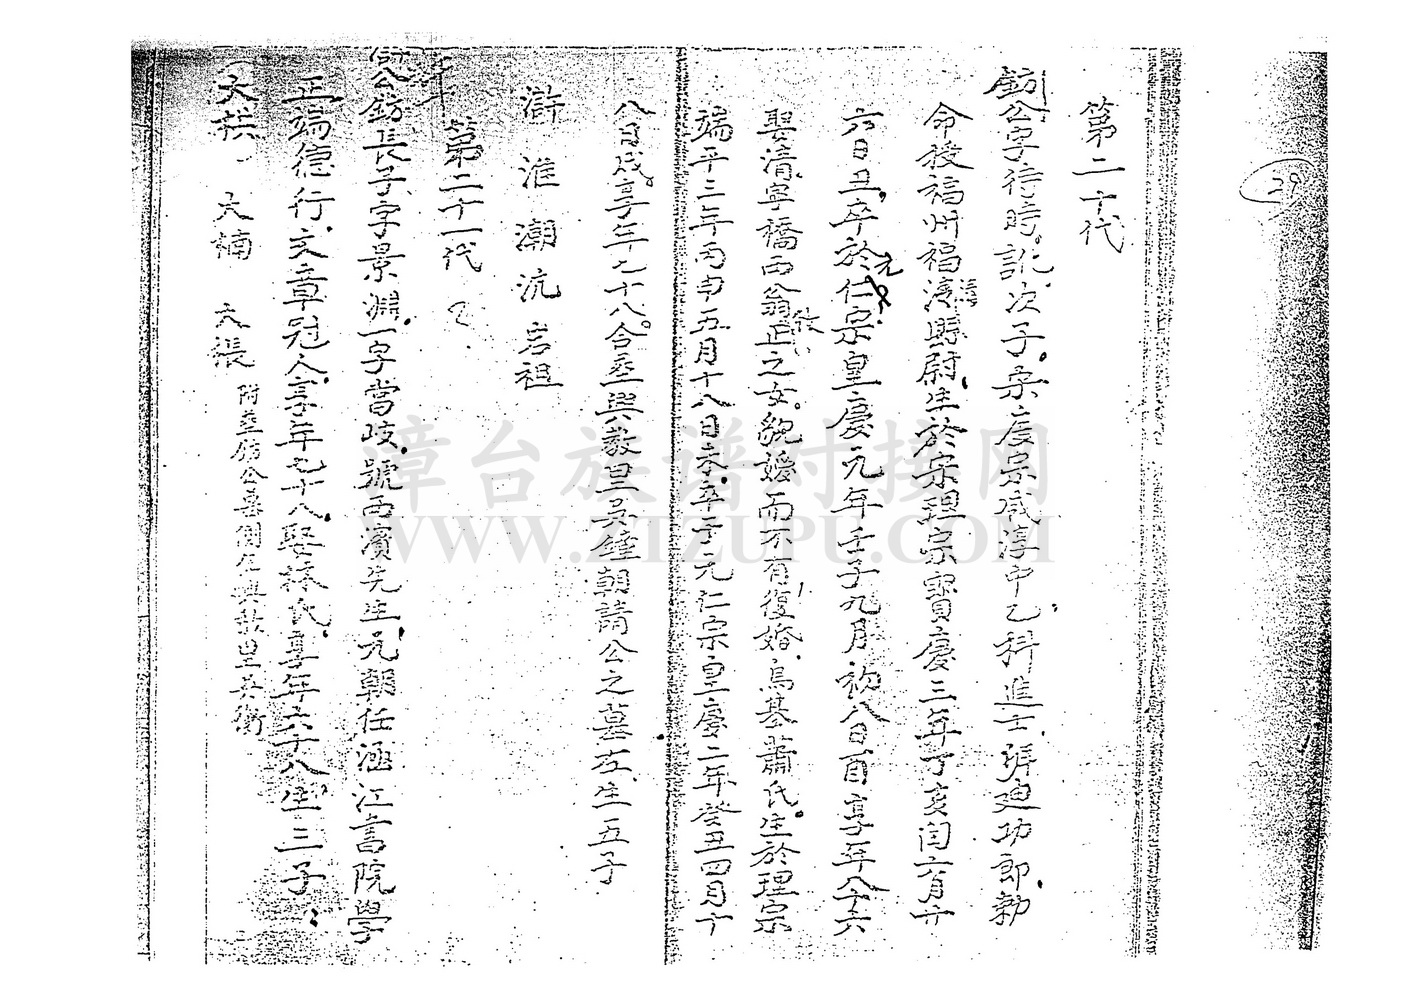 29
第二十代
鈁公字待時,訛次子,宋度宗咸淳中乙科進士,班迪功郎,勅
命授福州福清縣尉,生於宋理宗寶慶三年丁亥閏六月廿
六日丑,卒於元仁宗皇慶元年壬子九月初八日酉享年八十六
娶清寧橋西翁正之女,貌嫒而不有,復婚烏基蕭氏生於理宗
端平三年丙申五月十八日未,卒于元仁宗皇慶二年癸丑四月十
八日戌,享年七十八,合塟興教里吳鐘朝請公之墓左,生五子
滸 淮 潮 沆 岩祖
第二十一代
公鈁長子,字景淵,一字當岐,號西濱先生,元朝任涵江書院學
正端德行,文章冠人,享年七十八娶林氏,享年六十八生三子:
大祺、大楠 大張 附塟鈁公墓側在興教里吳衛
漳台族谱对接网
WWW.ZTZUPU.COM